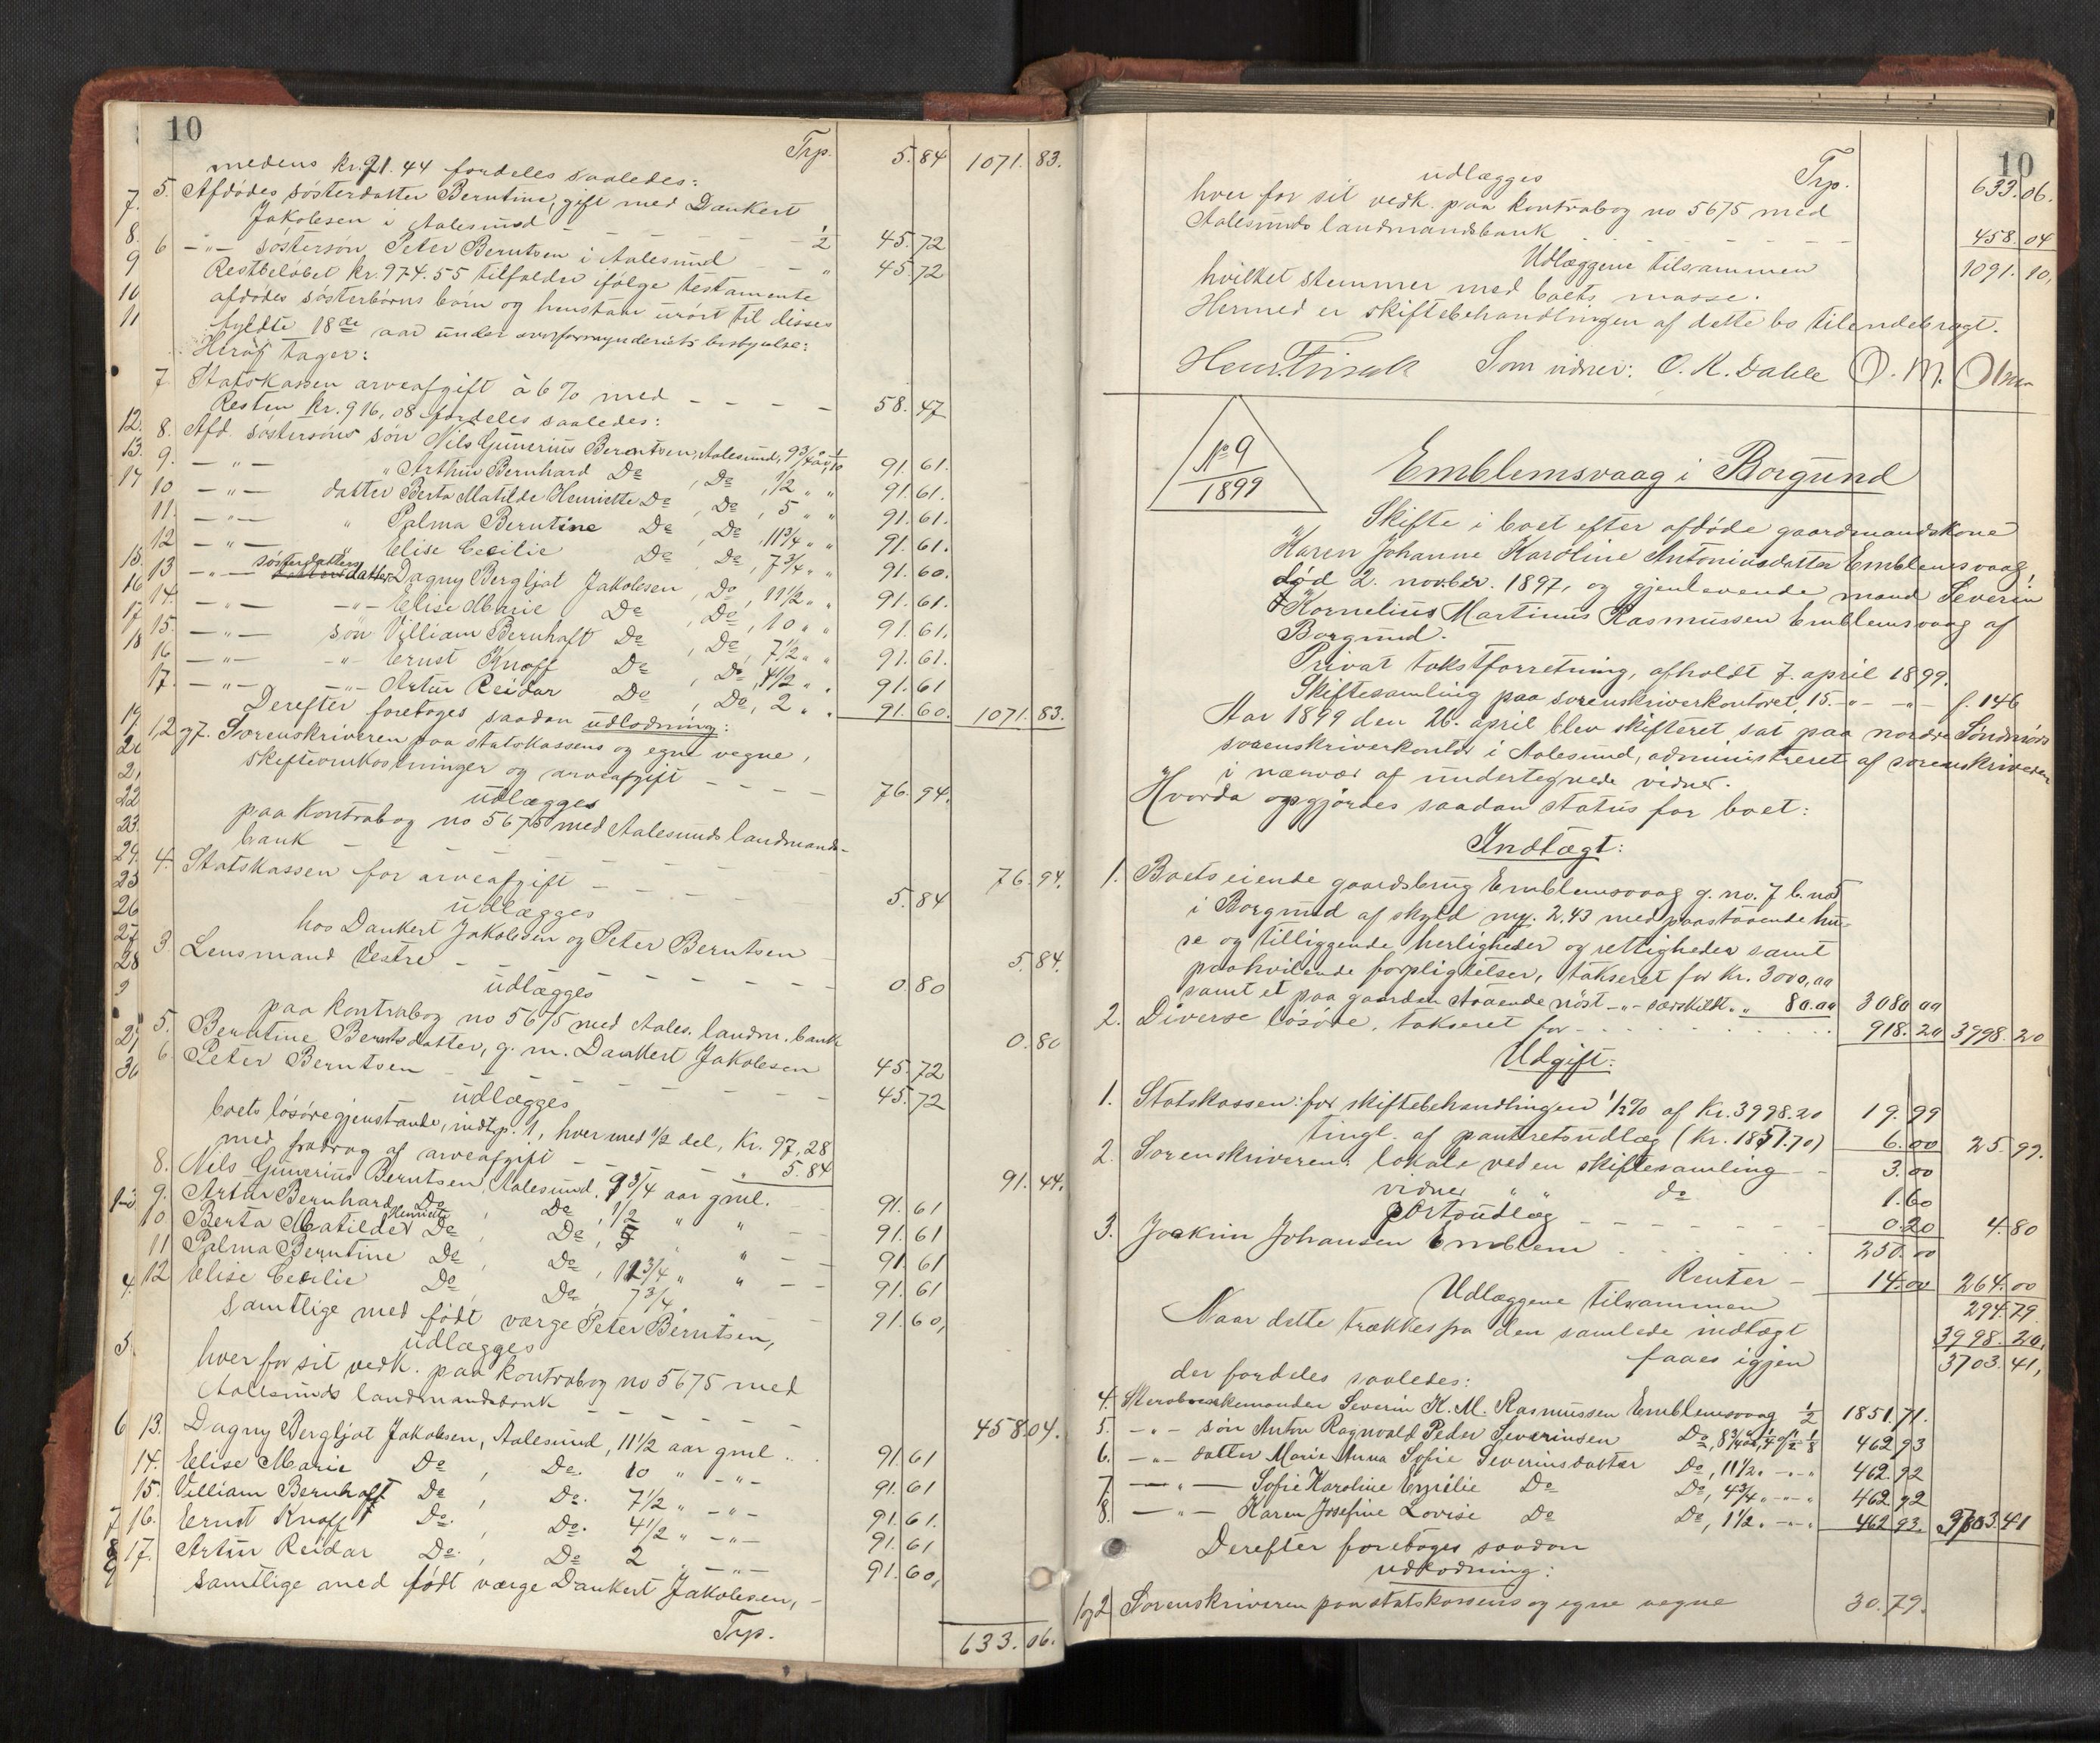 10
Trp. 5.84 1071.83.
medens kr. 91.44 fordeles saaledes:
5. Afdødes søsterdatter Berntine, gift med Dankert
Jakobsen i Aalesund - - - - - - 1/2 45.72
6 -"- søstersøn Peter Berntsen i Aalesund - - " 45.72
Restbeløbet kr. 974.55 tilfalder ifølge testamente
afdødes søsterbørns børn og henstaar urørt til disses
fyldte 18de aar under overformynderiets bestyrelse:
Heraf tager:
7. Statskassen arveafgift à 6 % med - - - - 58.47
Resten kr. 916,08 fordeles saaledes:
8. Afd. søstersøns søn Nils Gunerius Berntsen, Aalesund, 9 3/4 aar, 1/10 91.61.
9. -"- " Arthur Bernhard Do , Do , 1/2 " " 91.61.
10 -"- datter Berta Matilde Henriette Do , Do , 5 " " 91.61.
11. -"- " Palma Berntine Do , Do , 11 3/4 " " 91.61.
12 -"- " Elise Cecilie Do , Do , 7 3/4 " " 91.60.
13 -"- søsterdatters datter Dagny Bergljot Jakobsen , Do , 11 1/2 " " 91.61.
14. -"- -"- Elise Marie Do , Do , 10 " " 91.61.
15. -"- søn Villiam Bernhoft Do , Do , 7 1/2 " " 91.61.
16 -"- -"- Ernst Knoff Do , Do , 4 1/2 " " 91.61
17. -"- -"- Artur Reidar Do , Do , 2 " " 91.60. 1071.83.
Derefter foretages saadan udlodning:
1,2 og 7. Sorenskriveren paa statskassens og egne vegne,
skifteomkostninger og arveafgift - - - - 76.94.
udlægges
paa kontrabog no 5675 med Aalesunds landmands-
bank - - - - - - - 76.94.
4. Statskassen for arveafgift - - - - 5.84
udlægges
hos Dankert Jakobsen og Peter Berntsen - 5.84.
3. Lensmand Vestre - - - - - - - 0.80
udlægges
paa kontrabog no 5675 med Aales. landm. bank 0.80
5. Berntine Berntsdatter, g. m. Dankert Jakobsen 45.72
6. Peter Berntsen - - - - - - 45.72
udlægges
boets løsøregjenstande, indt.p. 1, hver med 1/2 del, Kr. 97,28
med fradrag af arveafgift - - - " 5.84 91.44.
8. Nils Gunerius Berntsen, Aalesund, 9 3/4 aar gml. 91.61
9. Artur Bernhard Do , Do , 1/2 " " 91.61
10 Berta Matilde Henriette Do , Do , 5 " " 91.61
11 Palma Berntine Do , Do , 11 3/4 " " 91.61
12 Elise Cecilie Do , Do , 7 3/4 " " 91.60,
samtlige med født værge Peter Berntsen,
udlægges
hver for sit vedk. paa kontrabog no 5675 med
Aalesunds landmandsbank - - - - - 458.04.
13. Dagny Bergljot Jakobsen, Aalesund, 11 1/2 aar gml . . 91.61
14. Elise Marie Do , Do. 10 " -"- 91.61
15. Villiam Bernhoft Do , Do. 7 1/2 " -"- 91.61.
16. Ernst Knoff Do. , Do. 4 1/2 " -"- 91.61
17. Artur Reidar Do. , Do 2 " -"- 91.60,
samtlige med født værge Dankert Jakobsen, -
Trp. 633.06.
10
Trp. 633.06.
udlægges
hver for sit vedk. paa kontrabog no 5675 med
Aalesunds landmandsbank - - - - - - - 458.04
Udlæggene tilsammen 1091.10,
hvilket stemmer med boets masse.
Hermed er skiftebehandlingen af dette bo tilendebragt.
Som vidner: O. K. Dahle O. M.
No 9
1899
Emblemsvaag i Borgund
Skifte i boet efter afdøde gaardmandskone
Karen Johanne Karoline Antoniusdatter Emblemsvaag,
død 2. novber. 1897, og gjenlevende mand Severin
Kornelius Martinus Rasmussen Emblemsvaag af
Borgund.
Privat takstforretning, afholdt 7. april 1899.
Skiftesamling paa sorenskriverkontoret, 15. -"- -"- f. 146
Aar 1899 den 26. april blev skifteret sat paa nordre Søndmørs
sorenskriverkontor i Aalesund, administreret af sorenskriveren
i nærvær af undertegnede vidner.
Hvorda opgjordes saadan status for boet:
Indtægt:
1. Boets eiende gaardsbrug Emblemsvaag g. no. 7 b. no 5
i Borgund af skyld my. 2.43 med paastaaende hu-
se og tilliggende herligheder og rettigheder samt
paahvilende forpligtelser, takseret for kr. 3000,00
samt et paa gaarden staaende nøst -"- særskildt " " 80.00 3080 00
2. Diverse løsøre, takseret for - - - - - - 918.20 3998.20
Udgift:
1. Statskassen: for skiftebehandlingen 1/2 % af Kr. 3998.20 19.99
tingl. af panteretsudlæg (kr. 1851.70) 6.00 25.99.
2. Sorenskriveren: lokale ved en skiftesamling - - 3.00
vidner " " do 1.60
portoudlæg - - - - - - 0.20 4.80
3. Joakim Johansen Emblem . . . . . . 250.00
Renter - 14.00 264.00
Udlæggene tilsammen 294.79
Naar dette trækkes fra den samlede indtægt 3998.20,
faaes igjen 3703.41,
der fordeles saaledes:
4. Sterboenkemanden Severin K. M. Rasmussen Emblemsvaag 1/2 1851.71.
5. -"- søn Anton Ragnvald Peder Severinsen Do, 8 3/4 aar, 1/4 af 1/2 1/8 462.93
6. -"- datter Marie Anna Sofie Severinsdatter Do, 11 1/2 " -"- " 462.92
7. -"- Sofie Karoline Emilie Do Do, 4 3/4 " -"- " 462.92
8. -"- Karen Josefine Lovise Do Do, 1 1/2 " -"- " 462.93. 3703.41
Derefter foretages saadan
udlodning:
1 og 2 Sorenskriveren paa statskassens og egne vegne 30.79.